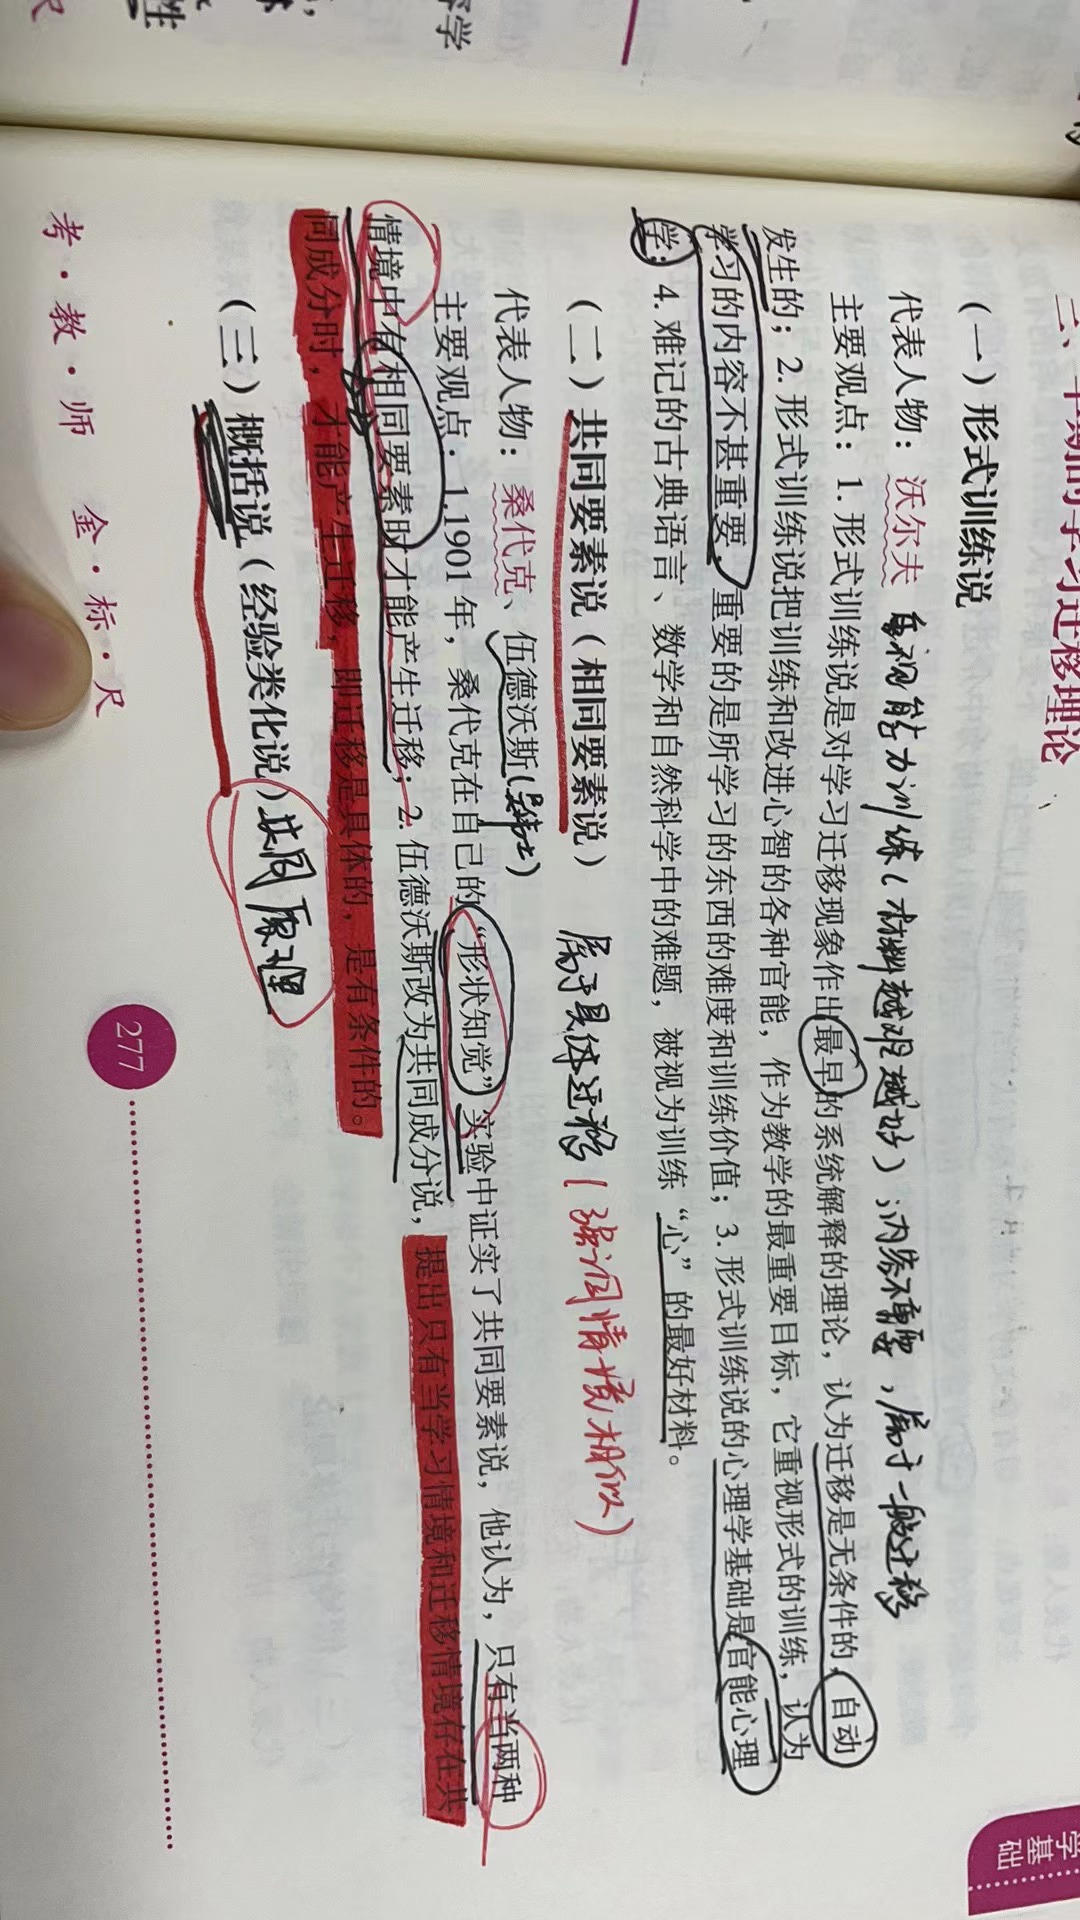 二、早期的学习迁移理论
（一）形式训练说
代表人物：沃尔夫 重视能力训练（材料越难越好）；内容不重要，属于一般迁移
主要观点：1. 形式训练说是对学习迁移现象作出最早的系统解释的理论，认为迁移是无条件的，自动
发生的；2. 形式训练说把训练和改进心智的各种官能，作为教学的最重要目标，它重视形式的训练，认为
学习的内容不甚重要，重要的是所学习的东西的难度和训练价值；3. 形式训练说的心理学基础是官能心理
学；4. 难记的古典语言、数学和自然科学中的难题，被视为训练“心”的最好材料。
（二）共同要素说（相同要素说） 属于具体迁移（强调情境相似）
代表人物：桑代克、伍德沃斯
主要观点：1.1901 年，桑代克在自己的“形状知觉”实验中证实了共同要素说，他认为，只有当两种
情境中有相同要素时才能产生迁移；2. 伍德沃斯改为共同成分说，提出只有当学习情境和迁移情境存在共
同成分时，才能产生迁移，即迁移是具体的，是有条件的。
（三）概括说（经验类化说）共同原理
考·教·师 金·标·尺
277
学基础